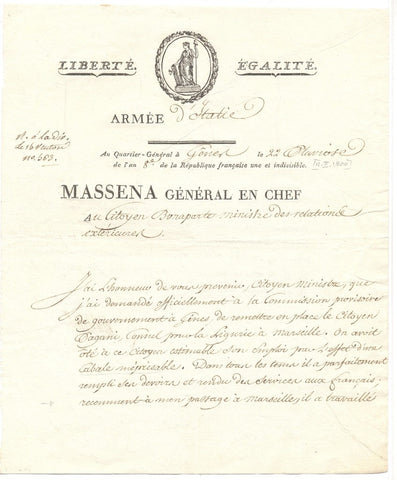 LIBERTÉ. ÉGALITÉ.
ARMÉE d'Italie
Au Quartier-Général à Gênes le 22 Pluviose
de l'an 8e de la République française une et indivisible. [11. II. 1800]
R. à la Dion
le 16 ventose
no. 563.
MASSENA GÉNÉRAL EN CHEF
Au Citoyen Bonaparte ministre des relations
exterieures.
J'ai l'honneur de vous prevenir, Citoyen Ministre, que
j'ai demandé officiellement à la Commission provisoire
de gouvernement à Gênes de remettre en place le Citoyen
Pagani, Consul pour la Ligurie à Marseille. On avoit
ôté à ce Citoyen estimable Son Emploi par l'effet d'une
Cabale méprisable. Dans tous les tems il a parfaitement
rempli ses devoirs et rendu des Services aux français.
recemment à mon passage à Marseille, il a travaillé